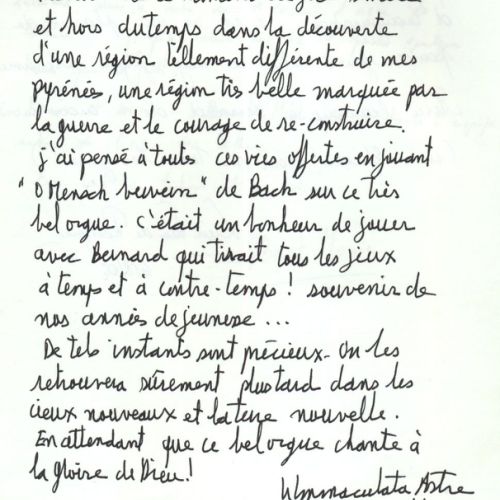 et hors du temps dans la découverte
d'une région tellement différente de mes
pyrénés, une région très belle marquée par
la guerre et le courage de re-construire.
j'ai pensé à toutes ces vies offertes en jouant
"O Mensch bewein" de Bach sur ce très
bel orgue. c'était un bonheur de jouer
avec Bernard qui tirait tous les jeux
à temps et à contre-temps ! souvenir de
nos années de jeunesse ...
De tels instants sont précieux - on les
retrouvera sûrement plus tard dans les
cieux nouveaux et la terre nouvelle.
En attendant que ce bel orgue chante à
la gloire de Dieu !
Immaculata Astre